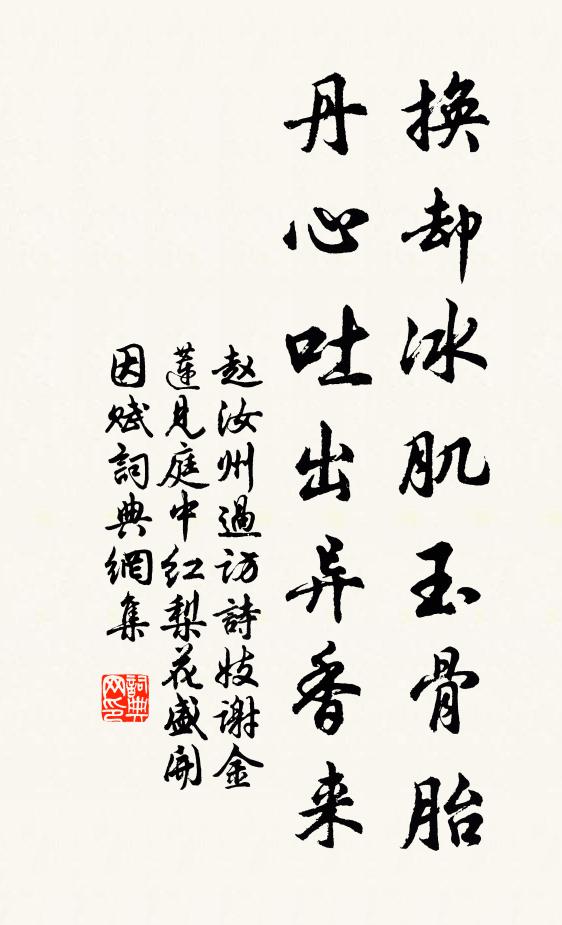 换却冰肌玉骨胎
丹心吐出异香来
赵汝州過访詩妓谢金
蓮見庭中红梨花盛開
因赋詞典網集
詞典
网印